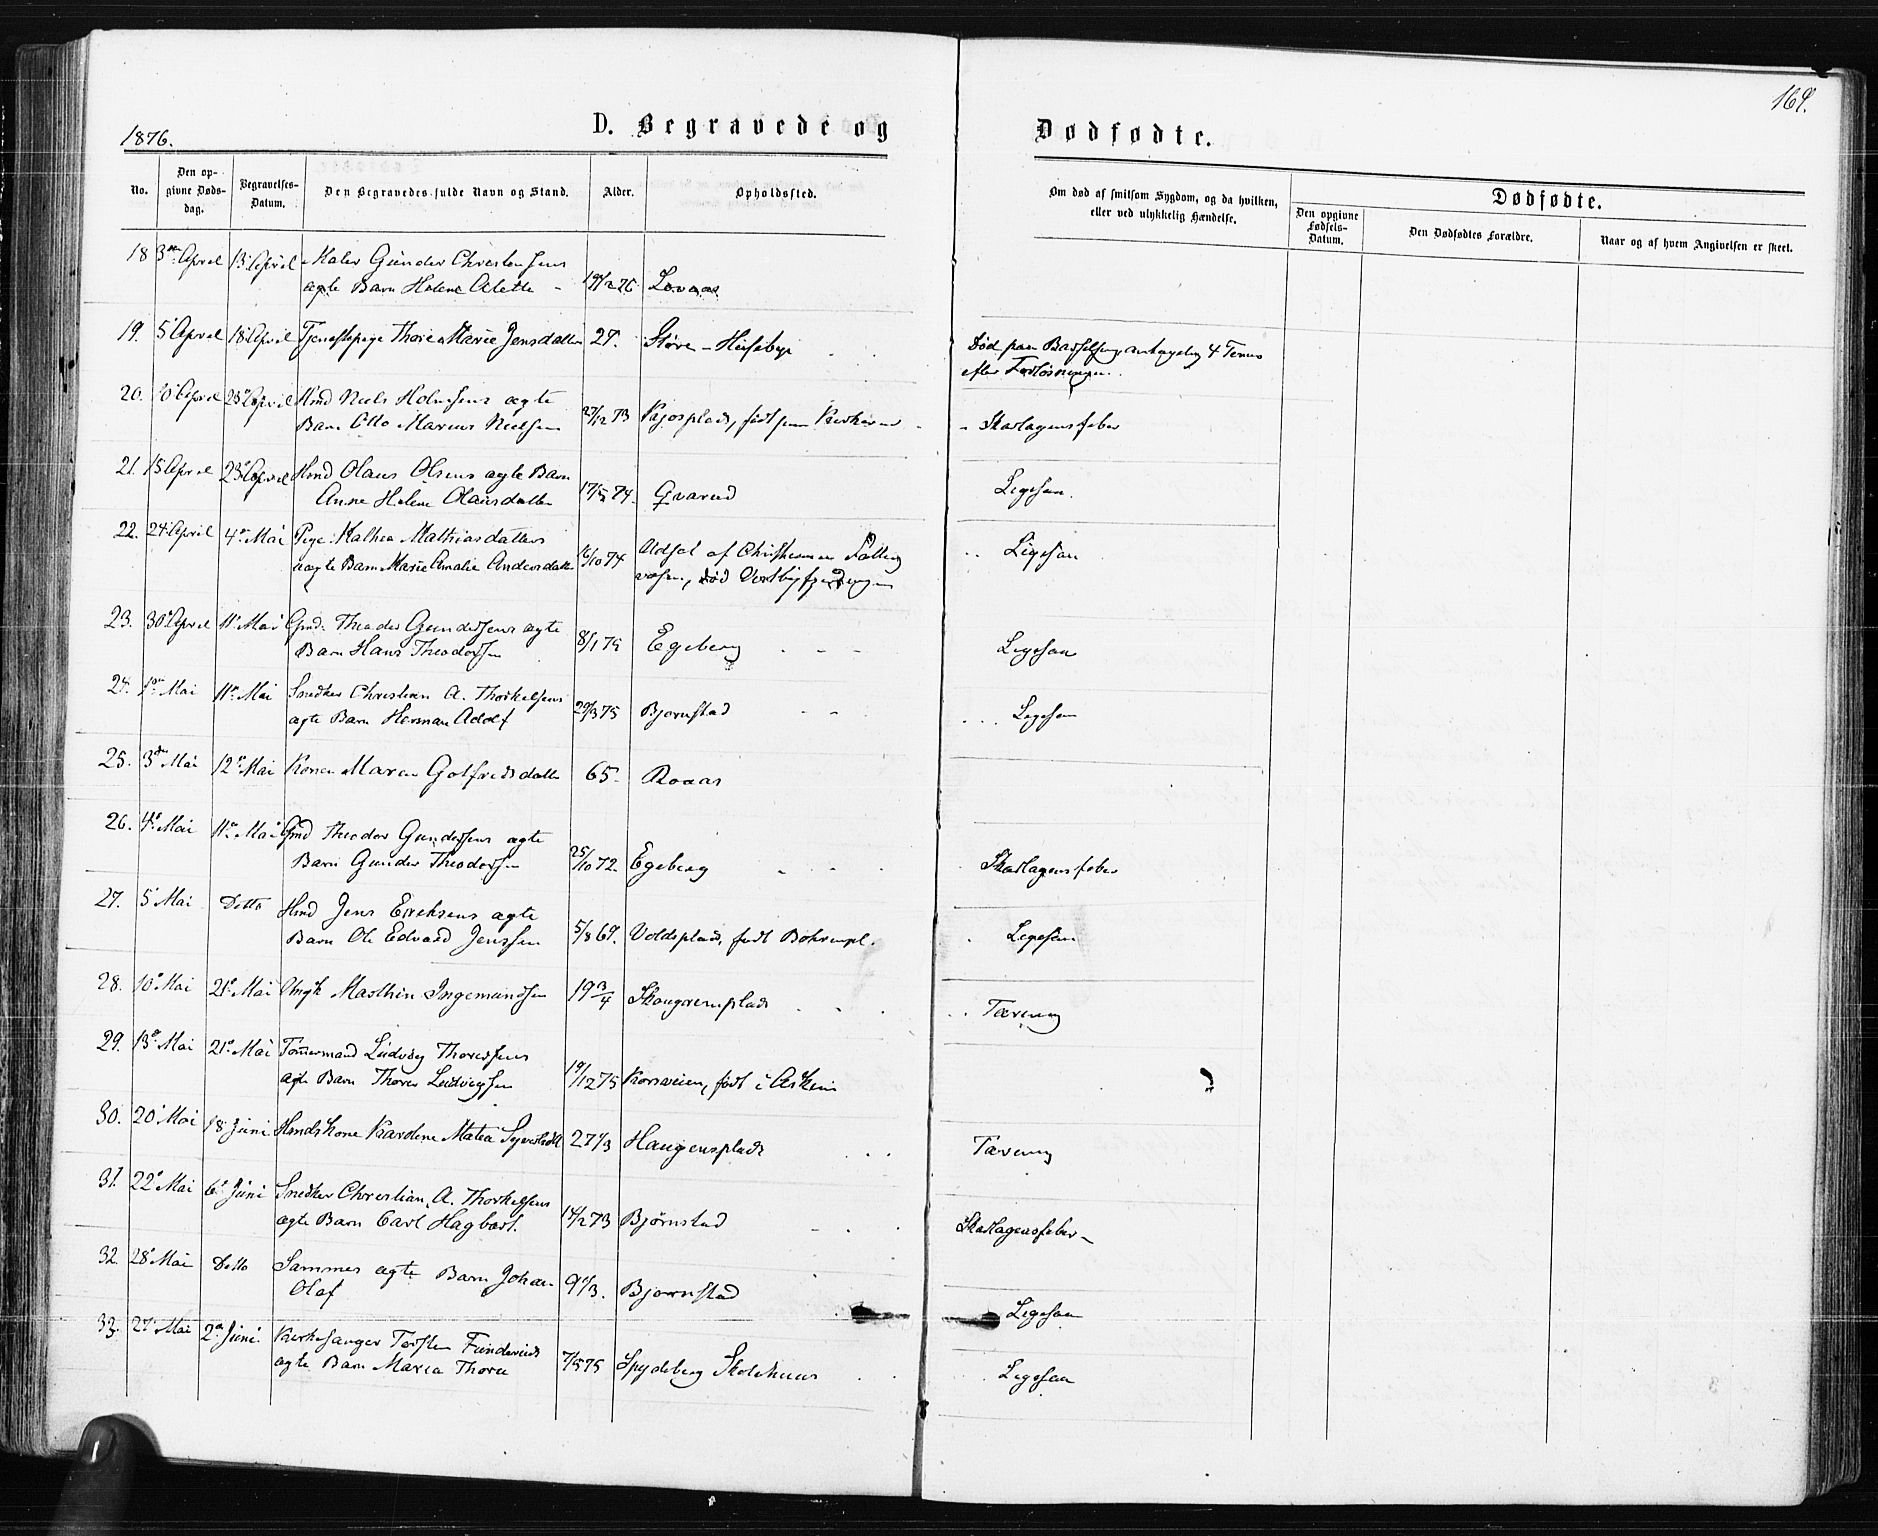 169.
1876.
D. Begravede og Dødfødte.
No.
Den opgivne Dødsdag.
Begravelses-Datum.
Den Begravedes fulde Navn og Stand.
Alder.
Opholdssted.
Om død af smitsom Sygdom, og da hvilken, eller ved ulykkelig Hændelse.
Dødfødte.
Den opgivne Fødsels-Datum.
Den Dødfødtes Forældre.
Naar og af hvem Angivelsen er skeet.
18 3die April 13 April Maler Gunder Christensens
ægte Barn Helene Alette 19/12 75 Lovaas
19. 5 April 18 April Tjenestepige Thore Marie Jensdatter 27. Støre-Huseby
Død paa Barselseng, antagelig 4 Timer
efter Forløsningen.
20. 10 April 23 April Hmd Niels Holmsens ægte
Barn Otto Marius Nielsen 27/12 73 Skarlagensfeber
21. 15 April 23 April Hmd Olaus Olsens ægte Barn
Anne Helene Olausdatter 17/5 74. Qvarud Ligesaa.
22. 24 April 4de Mai Pige Kathea Mathiasdatters
uægte Barn Marie Amalie Andersdatter 6/10 74 Udsat af Christiania Fattig
væsen, død Ligesaa
23. 30 April 11 Mai Gmd. Theodor Gundersens ægte
Barn Hans Theodorsen 8/1 75 Egeberg Ligesaa
24. 1ste Mai 11te Mai Snedker Christian A. Thorkelsens
ægte Barn Herman Adolf 29/3 75 Bjørnstad Ligesaa
25. 3die Mai 12te Mai Konen Maren Golfredsdatter 65. Roaas
26. 4de Mai 11te Mai Gmd Theodor Gundersens ægte
Barn Gunder Theodorsen 25/10 72. Egeberg Skarlagensfeber
27. 5 Mai Ditto Hmd Jens Ericksens ægte
Barn Ole Edvard Jenssen 5/8 69. Voldsplads, født Ligesaa
28. 10 Mai 21de Mai Ungk Marthin Ingemundsen 19 3/4 Skougvemplads Tæring
29. 13de Mai 21de Mai Tømmermand Ludvig Thoresens
ægte Barn Thorer Ludvigsen 19/12 75 Korsveien, født i Askim
30. 20 Mai 18 Juni Hmdskone Karoline Matea 27 1/3 Haugensplads Tæring
31. 22de Mai 6te Juni Snedker Christian A. Thorkelsens
ægte Barn Carl Hagbart. 14/2 73 Bjørnstad Skarlagensfeber
32. 28de Mai Ditto Sammes ægte Barn Johan
Olaf 9 1/3. Bjørnstad Ligesaa
33. 27 Mai 2den Juni. Kirkesanger Torsten Funderuds
ægte Barn Maria Thora 7/5 75 Spydeberg Skolehuus Ligesaa